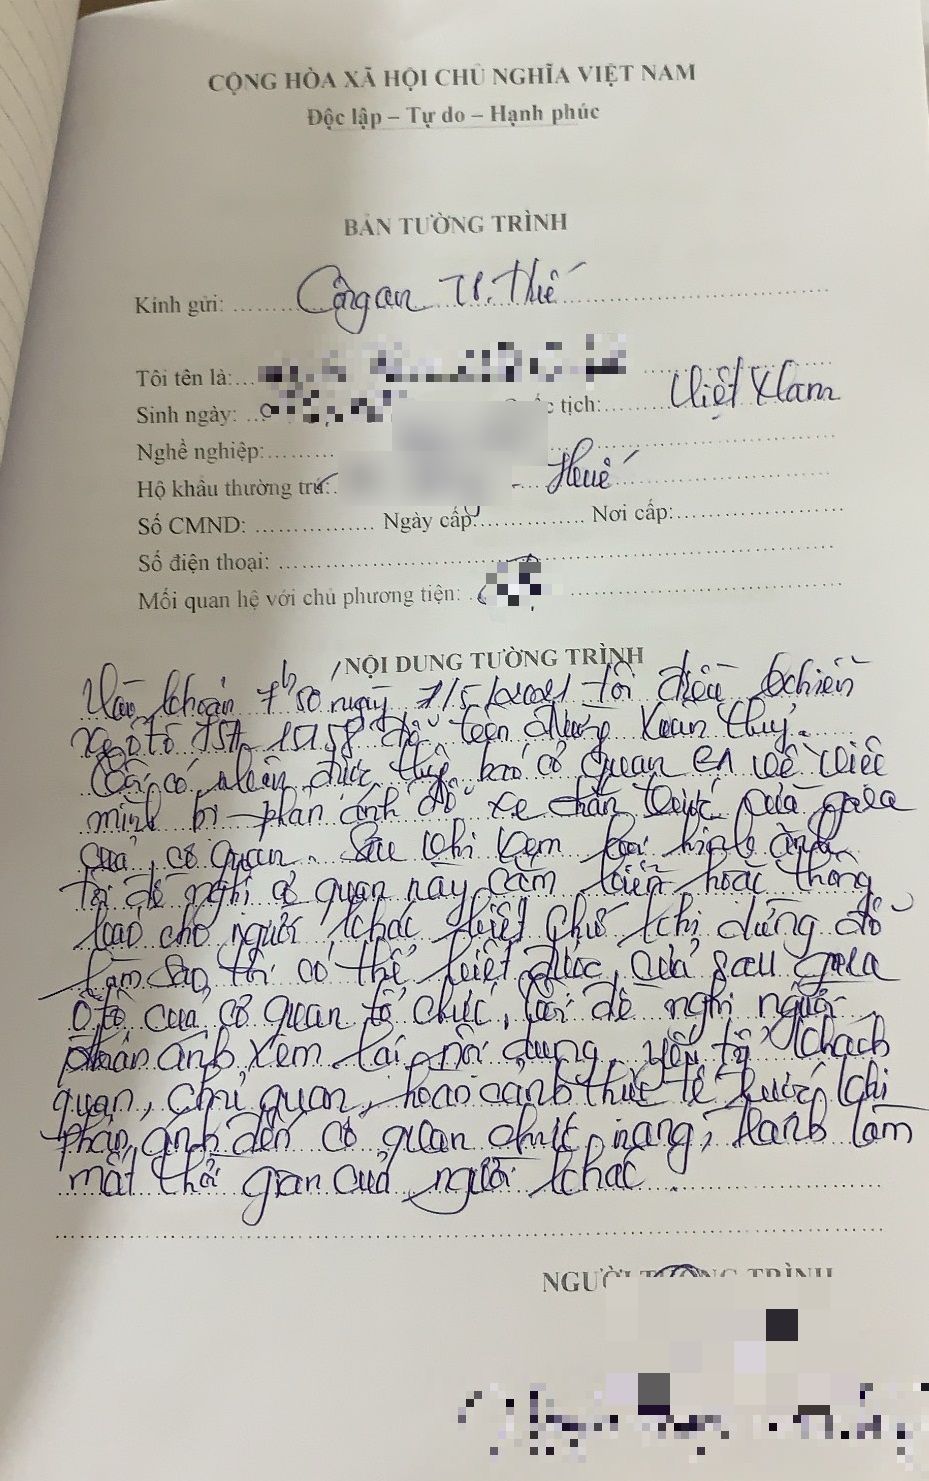 CỘNG HÒA XÃ HỘI CHỦ NGHĨA VIỆT NAM
Độc lập – Tự do – Hạnh phúc
BẢN TƯỜNG TRÌNH
Kính gửi: Công an TP. Huế
Tôi tên là:
Sinh ngày: tịch: Việt Nam
Nghề nghiệp:
Hộ khẩu thường trú: - Huế
Số CMND: Ngày cấp: Nơi cấp:
Số điện thoại:
Mối quan hệ với chủ phương tiện:
NỘI DUNG TƯỜNG TRÌNH
Vào khoản 7h50 ngày 7/5/2021 tôi điều khiển
xe ô tô 75A 151.58 đỗ trên đường Xuân Thủy.
có nhận được thông báo cơ quan CA về việc
mình bị phản ánh đỗ xe chắn trước cửa gara
của cơ quan. Sau khi xem lại hình ảnh
tôi đề nghị cơ quan này cắm biển hoặc thông
báo cho người khác biết chứ khi dừng đỗ
làm sao thì có thể biết được cửa sau gara
ô tô của cơ quan tổ chức, tôi đề nghị người
phản ánh xem lại nội dung, yếu tố khách
quan, chủ quan, hoàn cảnh thực tế trước khi
phản ánh đến cơ quan chức năng, tránh làm
mất thời gian của người khác.
NGƯỜI TƯỜNG TRÌNH